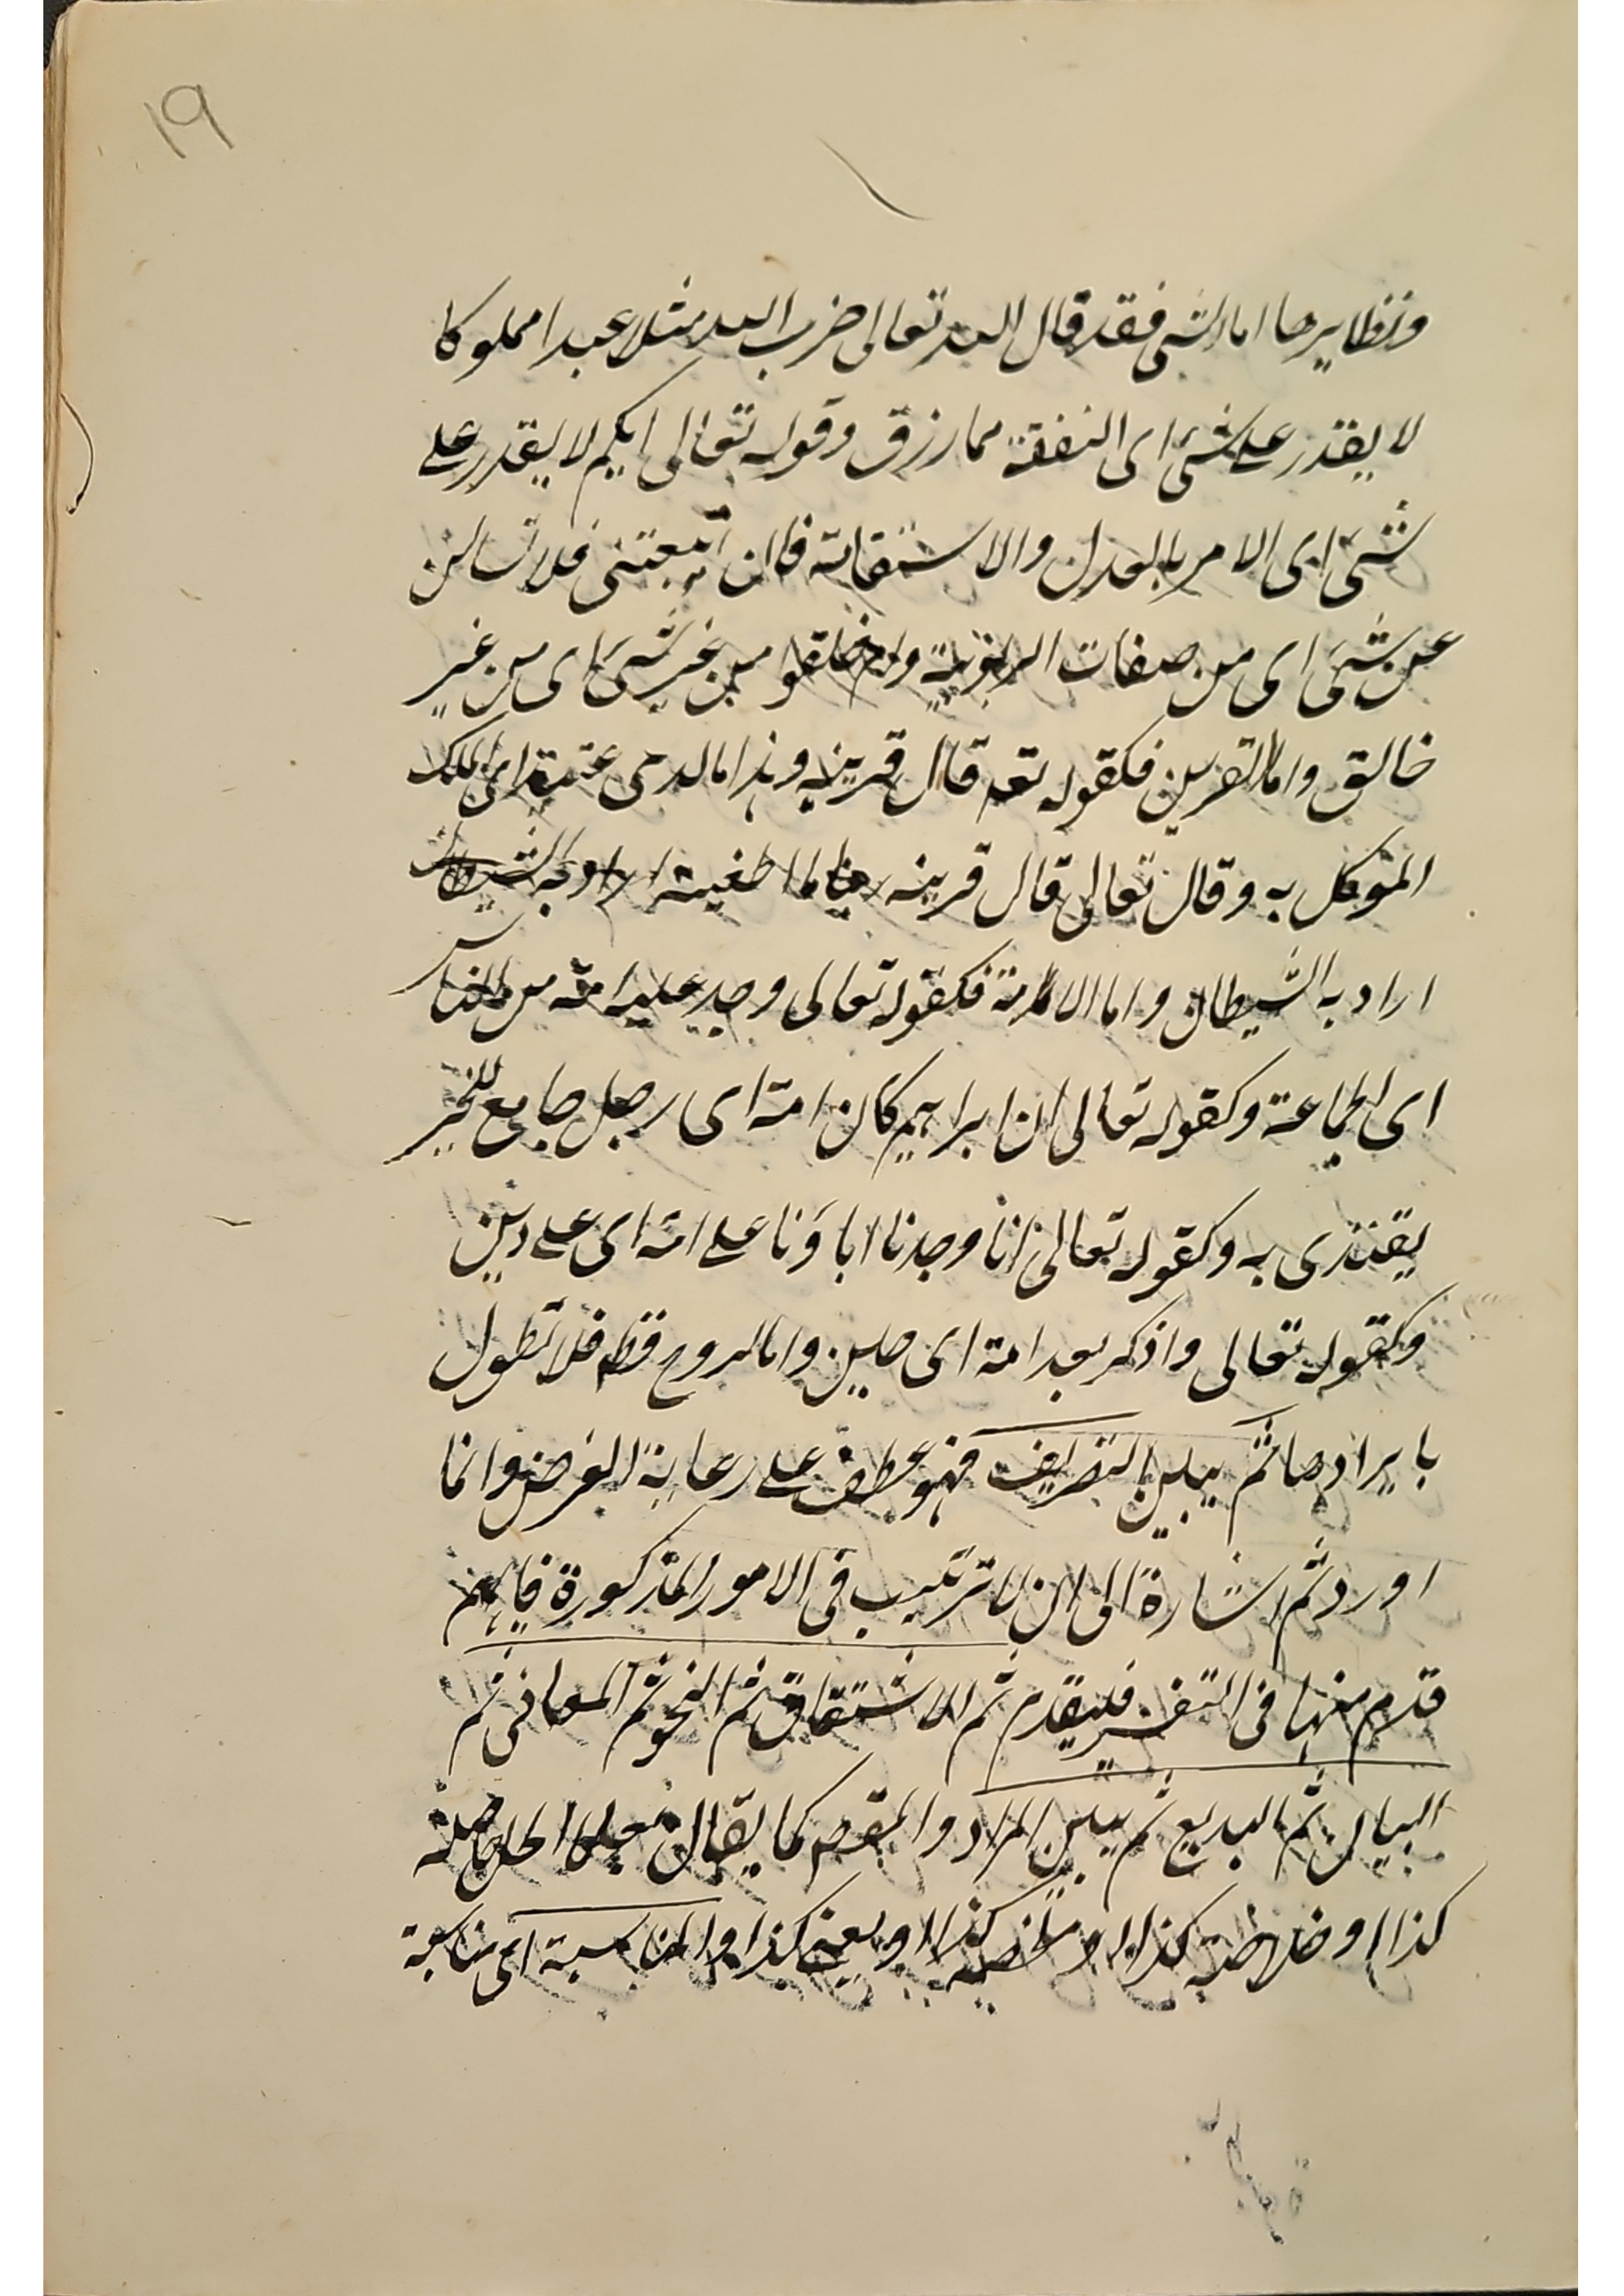 ١٩
ونظايرها اما الشى فقد قال الله تعالى ضرب الله مثلا عبدا مملوكا
لا يقدر على شئ اى النفقة مما رزق وقوله تعالى ابكم لا يقدر على
شئ اى الامر بالعدل والاستقامة فان اتبعتنى فلا تسالن
عن شئ اى من صفات الربوبية وام خلقوا من غير شئ اى من غير
خالق واما القرين فكقوله تعه قال قرينه وهذا ما لدى عتيد اى الملك
الموكل به وقال تعالى قال قرينه ربنا ما اطغيته اراد به الشيطان
اراد به الشيطان واما الامة فكقوله تعالى وجد عليه امة من الناس
اى الجماعة وكقوله تعالى ان ابراهيم كان امة اى رجل جامع للخير
يقتدى به وكقوله تعالى انا وجدنا اباؤنا على امة اى على دين
وكقوله تعالى واذكر بعد امة اى حين واما الروح فظه فلا نطول
بايرادها ثم يبين التصاريف فهو عطف على رعاية الغرض وانما
اورد ثم اشارة الى ان لا ترتيب فى الامور المذكورة فايهم
قدم منها فى التفسير فليقدم ثم الاشتقاق ثم النحو ثم المعانى ثم
البيان ثم البديع ثم يبين المراد والمقصم كما يقال حاصله
كذا او خلاصته كذا او ملخصه كذا او يعنى كذا والمناسبة اى مناسبة